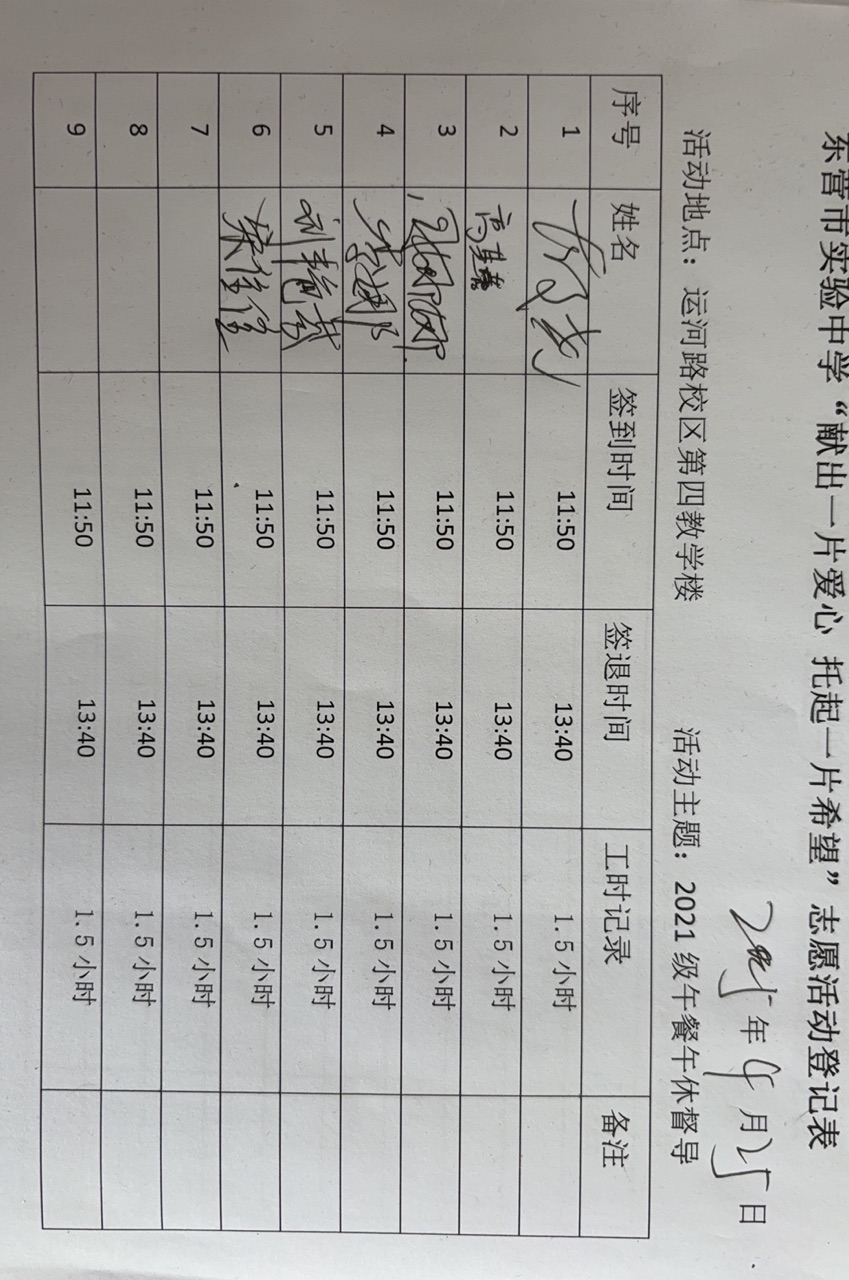 东营市实验中学“献出一片爱心 托起一片希望”志愿活动登记表
年 月25日
活动地点：运河路校区第四教学楼 活动主题：2021 级午餐午休督导
序号 姓名 签到时间 签退时间 工时记录 备注
1 11:50 13:40 1.5 小时
2 11:50 13:40 1.5 小时
3 11:50 13:40 1.5 小时
4 11:50 13:40 1.5 小时
5 11:50 13:40 1.5 小时
6 11:50 13:40 1.5 小时
7 11:50 13:40 1.5 小时
8 11:50 13:40 1.5 小时
9 11:50 13:40 1.5 小时